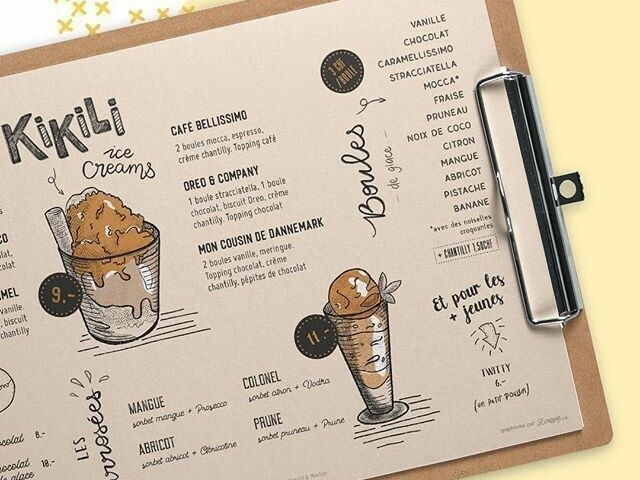 KiKiLi
ice
Creams
9.-
CAFÉ BELLISSIMO
2 boules mocca, espresso,
crème chantilly. Topping café
OREO & COMPANY
1 boule stracciatella, 1 boule
chocolat, biscuit Oreo, crème
chantilly. Topping chocolat
MON COUSIN DE DANNEMARK
2 boules vanille, meringue.
Topping chocolat, crème
chantilly, pépites de chocolat
11-
3 CHF
/BOULE
Boules
- de glace -
VANILLE
CHOCOLAT
CARAMELLISSIMO
STRACCIATELLA
MOCCA*
FRAISE
PRUNEAU
NOIX DE COCO
CITRON
MANGUE
ABRICOT
PISTACHE
BANANE
*avec des noisettes
croquantes
+ CHANTILLY 1.50CHF
Et pour les
+ jeunes
TWITTY
6.-
(un petit poussin)
vanille.
biscuit
chantilly
LES
MANGUE
sorbet mangue + Prosecco
ABRICOT
sorbet abricot + Abricotine
COLONEL
sorbet citron + Vodka
PRUNE
sorbet pruneau + Prune
8.-
10.-
graphisme par